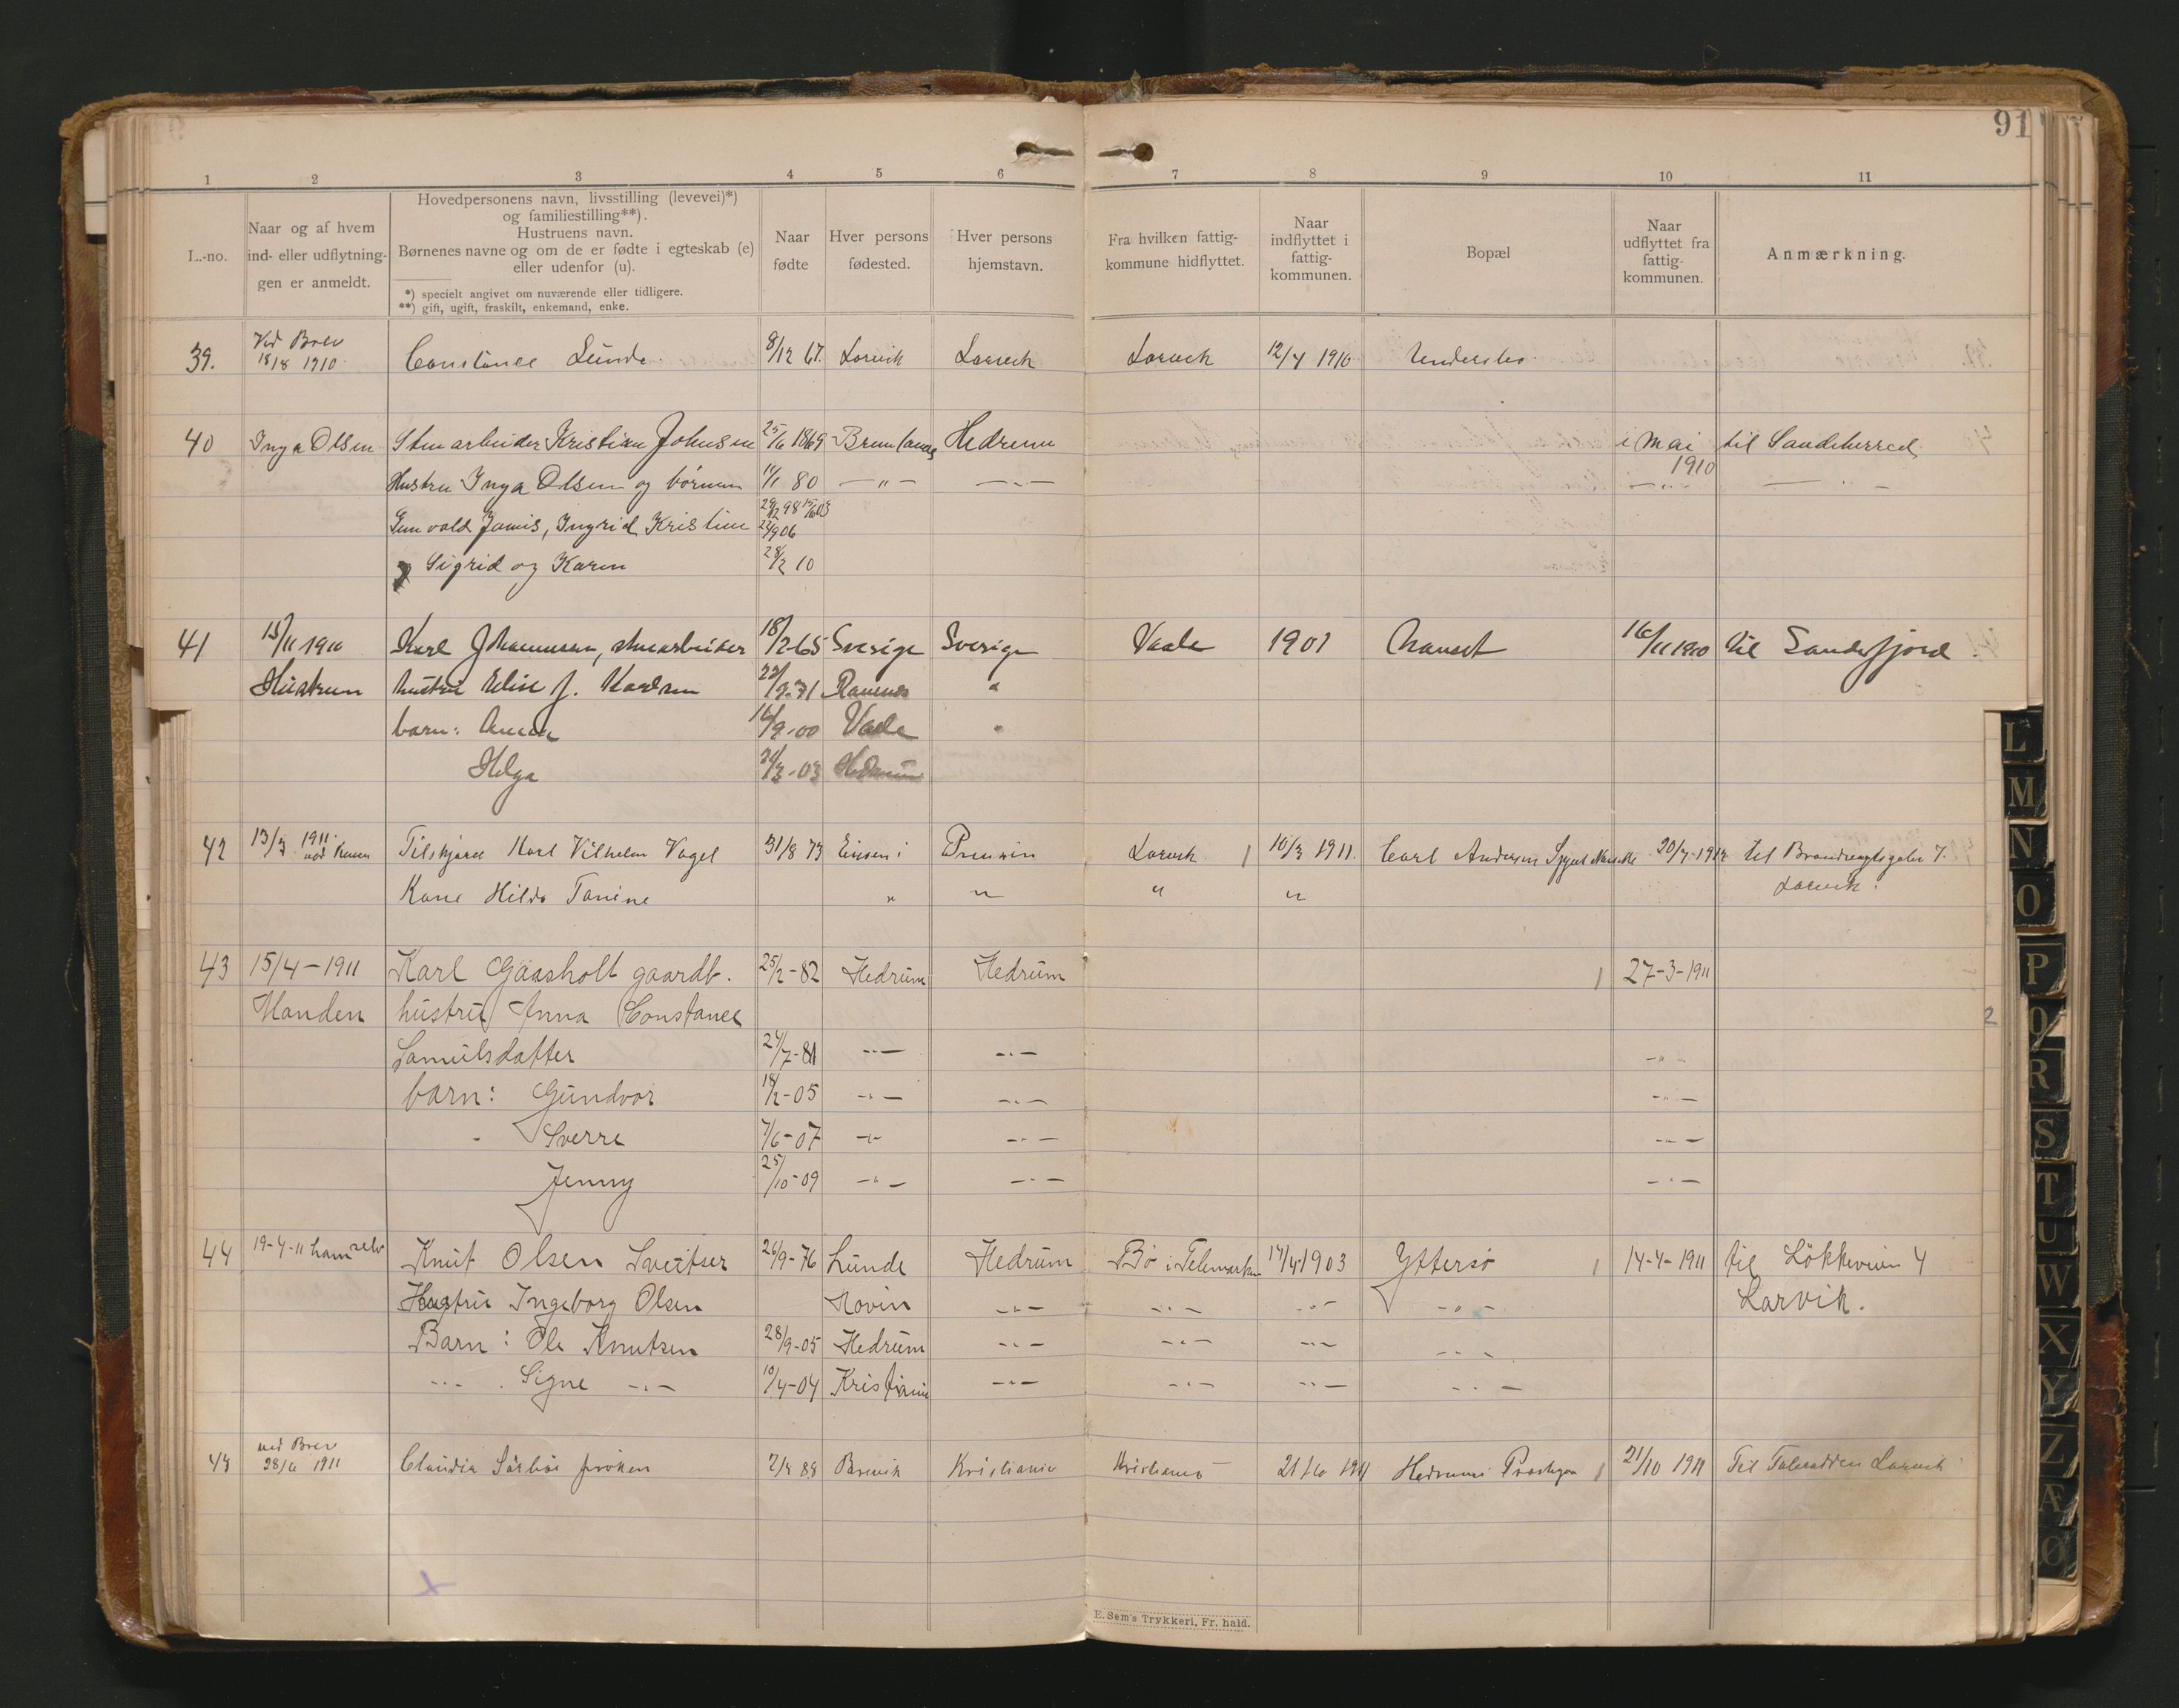 91
1 2 3 4 5 6 7 8 9 10 11
L.-no.
Naar og af hvem
ind- eller udflytnin-
gen er anmeldt.
Hovedpersonens navn, livsstilling (levevei)*)
og familiestilling**).
Hustruens navn.
Børnenes navne og om de er fødte i egteskab (e)
eller udenfor (u).
*) specielt angivet om nuværende eller tidligere.
**) gift, ugift, fraskilt, enkemand, enke.
Naar
fødte
Hver persons
fødested.
Hver persons
hjemstavn.
Fra hvilken fattig-
kommune hidflyttet.
Naar
indflyttet i
fattig-
kommunen.
Bopæl
Naar
udflyttet fra
fattig-
kommunen.
Anmærkning.
Ved Brev
39. 18/8 1910 Constance Lunde. 8/12 67. Larvik Larvik Larvik 12/4 1910
40 Inga Olsen Stenarbeider Kristian Johnsen 25/6 1869 Brunlanes Hedrum i mai til Sandeherred
1910
Hustru Inga Olsen og börnene 11/1 80 — " — — " — — " — — " —
Jamis, Ingrid Kristine 29/12 98 15/6 03
24/9 06
Sigrid og Karen 28/2 10
41 15/11 1910 Karl Johannesen, stenarbeider 18/2-65 Sverige Sverige Vaale 1901 Nanset 16/11 1910 til Sandefjord.
Hustruen hustru Elise J. Karlsen 22/9-71 Ramnes "
barn: Anna 16/9-00 Vaale "
Helga 24/3-03 Hedrum
42 13/3 1911 Karl Vilhelm Vogel 31/8 73 Preussen Larvik 10/3 1911. Carl Andersen 20/4-1912 til Brandvagtsgaden 7.
Larvik.
Kone Hilda Tomine " " " "
43 15/4-1911 Karl Gaasholt gaardb. 25/2-82 Hedrum Hedrum 27-3-1911
Manden hustru Anna Constance
Samuelsdatter 24/7-81 -"- -"- -"-
barn: Gundvor 14/2-05 -"- -"- -"-
" Sverre 7/6-07 -"- -"- -"-
Jenny 25/10-09 -"- -"- -"-
44 19-4-11 ham selv Knut Olsen Sveitser 26/9-76 Lunde Hedrum Bö i Telemarken 14/4 1903 Yttersö 14-4-1911 til Lökkeveien 4
Hustru Ingeborg Olsen Hovin -"- -"- -"- -"- Larvik.
Barn: Ole Knutsen 28/9-05 Hedrum -"- -"- -"- -"-
-"- Signe -"- 10/4-04 Kristiania -"- -"- -"- -"-
ved Brev
28/6 1911 Claudia fröken 7/4 88 Kristiania Kristiania 21/10 1911 Til Larvik
E. Sem's Trykkeri, Fr. hald.
L
M
N
O
P
Q
R
S
T
U
W
X
Y
Z
Æ
Ø